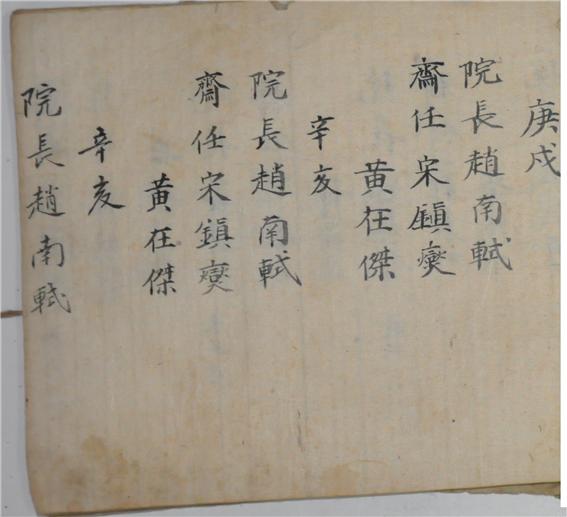 庚戌
院長趙南軾
齋任宋鎭燮
黃在傑
辛亥
院長趙南軾
齋任宋鎭燮
黃在傑
辛亥
院長趙南軾